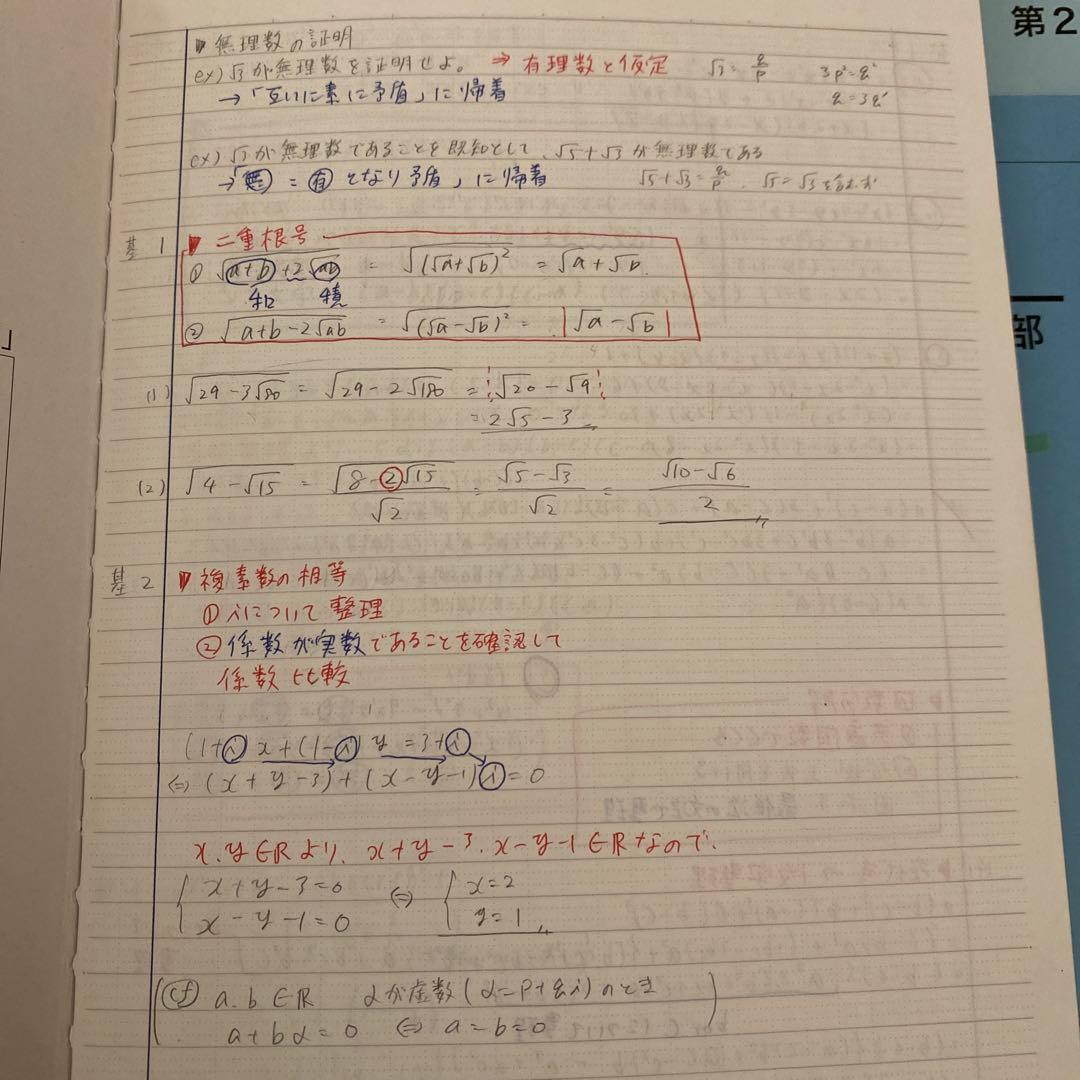 第2
部
▶ 無理数の証明
ex) √3が無理数を証明せよ。 ⇒ 有理数と仮定 √3 = q/p 3p²=q²
→「互いに素に矛盾」に帰着 q=3q'
ex) √3が無理数であることを既知として、√5+√3が無理数である
→「無 = 有 となり矛盾」に帰着 √5+√3 = q/p
基1 ▶ 二重根号
① √(a+b+2√ab) = √((√a+√b)²) = √a+√b.
和 積
② √(a+b-2√ab) = √((√a-√b)²) = |√a-√b|
(1) √(29-3√80) = √(29-2√180) = |√20-√9|
= 2√5-3
(2) √(4-√15) = √(8-2√15)/√2 = (√5-√3)/√2 = (√10-√6)/2
基2 ▶ 複素数の相等
① iについて整理
② 係数が実数であることを確認して
係数比較
(1+i)x+(1-i)y=3+i
⇔ (x+y-3)+(x-y-1)i=0
x.y∈ℝより、x+y-3、x-y-1∈ℝなので、
{ x+y-3=0 ⇔ { x=2
x-y-1=0 y=1
(cf) a.b∈ℝ αが虚数(α=p+qi)のとき
a+bα=0 ⇔ a=b=0